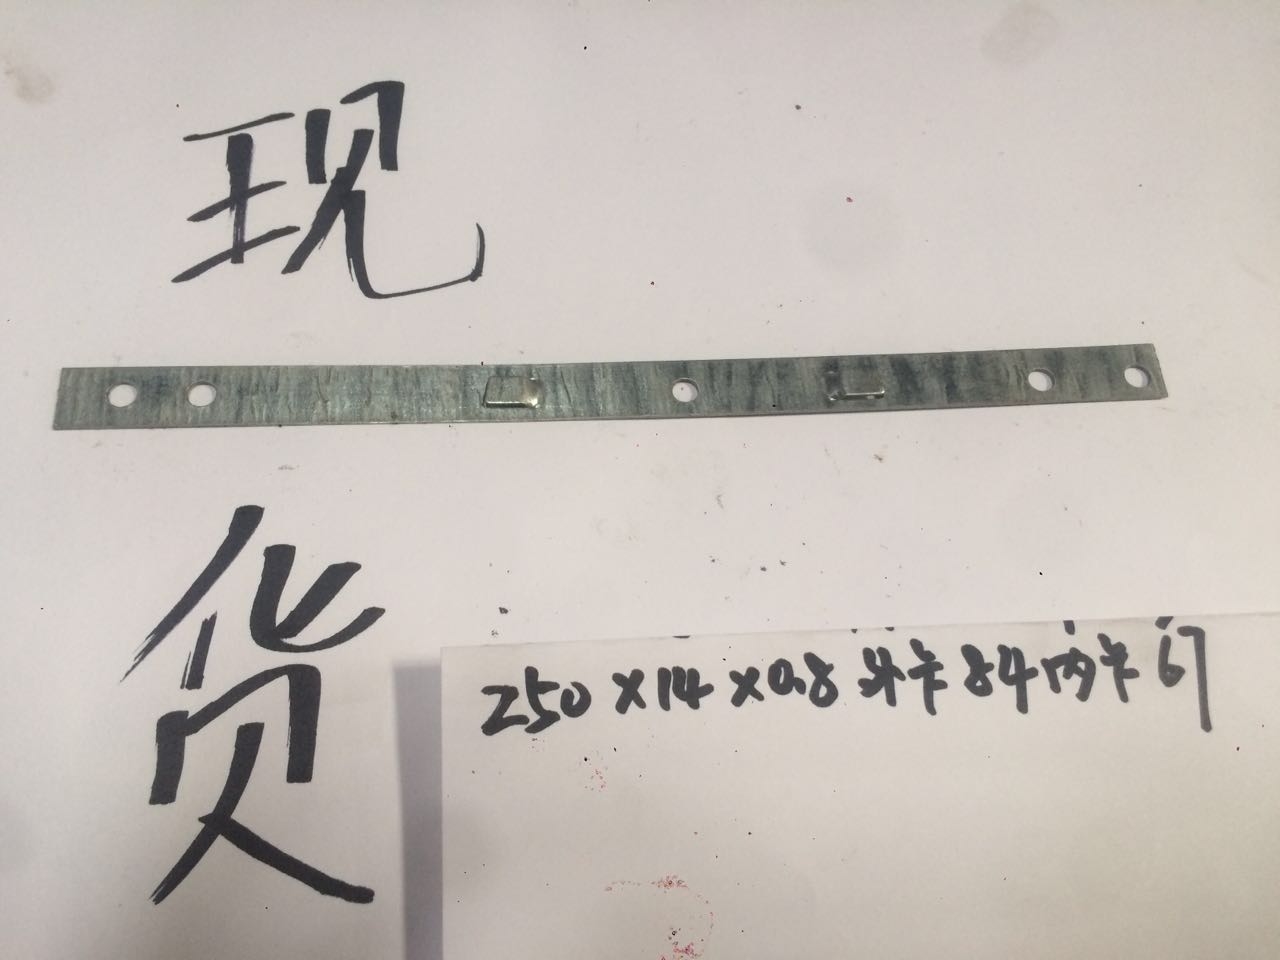 现
货
250×14×0.8 外卡84内卡67